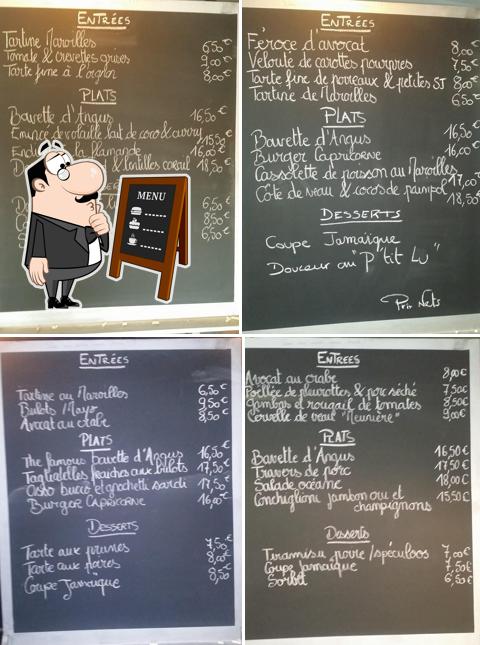 ENTRÉES
Tartine Maroilles 6,50€
Tomate & crevettes grises 9,00€
Tarte fine à l'oignon 8,00€
PLATS
Bavette d'Angus 16,50€
Emincé de volaille lait de coco & curry 15,50€
la flamande 16,00€
& lentilles corail 18,50€
6,50€
8,50€
6,50€
MENU
ENTRÉES
Féroce d'avocat 8,00€
Velouté de carottes pourpres 7,50€
Tarte fine de poireaux & petites SJ 8,00€
Tartine de Maroilles 6,50€
PLATS
Bavette d'Angus 16,50€
Burger Capricorne 16,00€
Cassolette de poisson au Maroilles 17,00€
Côte de veau & cocos de paimpol 18,50€
DESSERTS
Coupe Jamaïque
Douceur au "P'tit Lu"
Prix Nets
ENTRÉES
Tartine au Maroilles 6,50€
Bulots Mayo 9,50€
Avocat au crabe 8,50€
PLATS
The famous bavette d'Angus 16,50€
Tagliatelles fraîches aux bulots 17,50€
Osso bucco et gnochetti sardi 17,50€
BURGER CAPRICORNE 16,00€
DESSERTS
Tarte aux prunes 7,50€
Tarte aux poires 8,00€
Coupe Jamaïque 8,50€
ENTREES
Avocat au crabe 8,00€
Poëllée de pleurottes & porc séché 7,50€
Jambos et rougail de tomates 8,50€
Cervelle de veau "Meunière" 9,00€
PLATS
Bavette d'Angus 16,50€
Travers de porc 17,50€
Salade océane 18,00€
Conchiglioni jambon cru et 15,50€
champignons
Desserts
Tiramisu poire/spéculoos 7,00€
Coupe Jamaïque 7,50€
Sorbet 6,50€